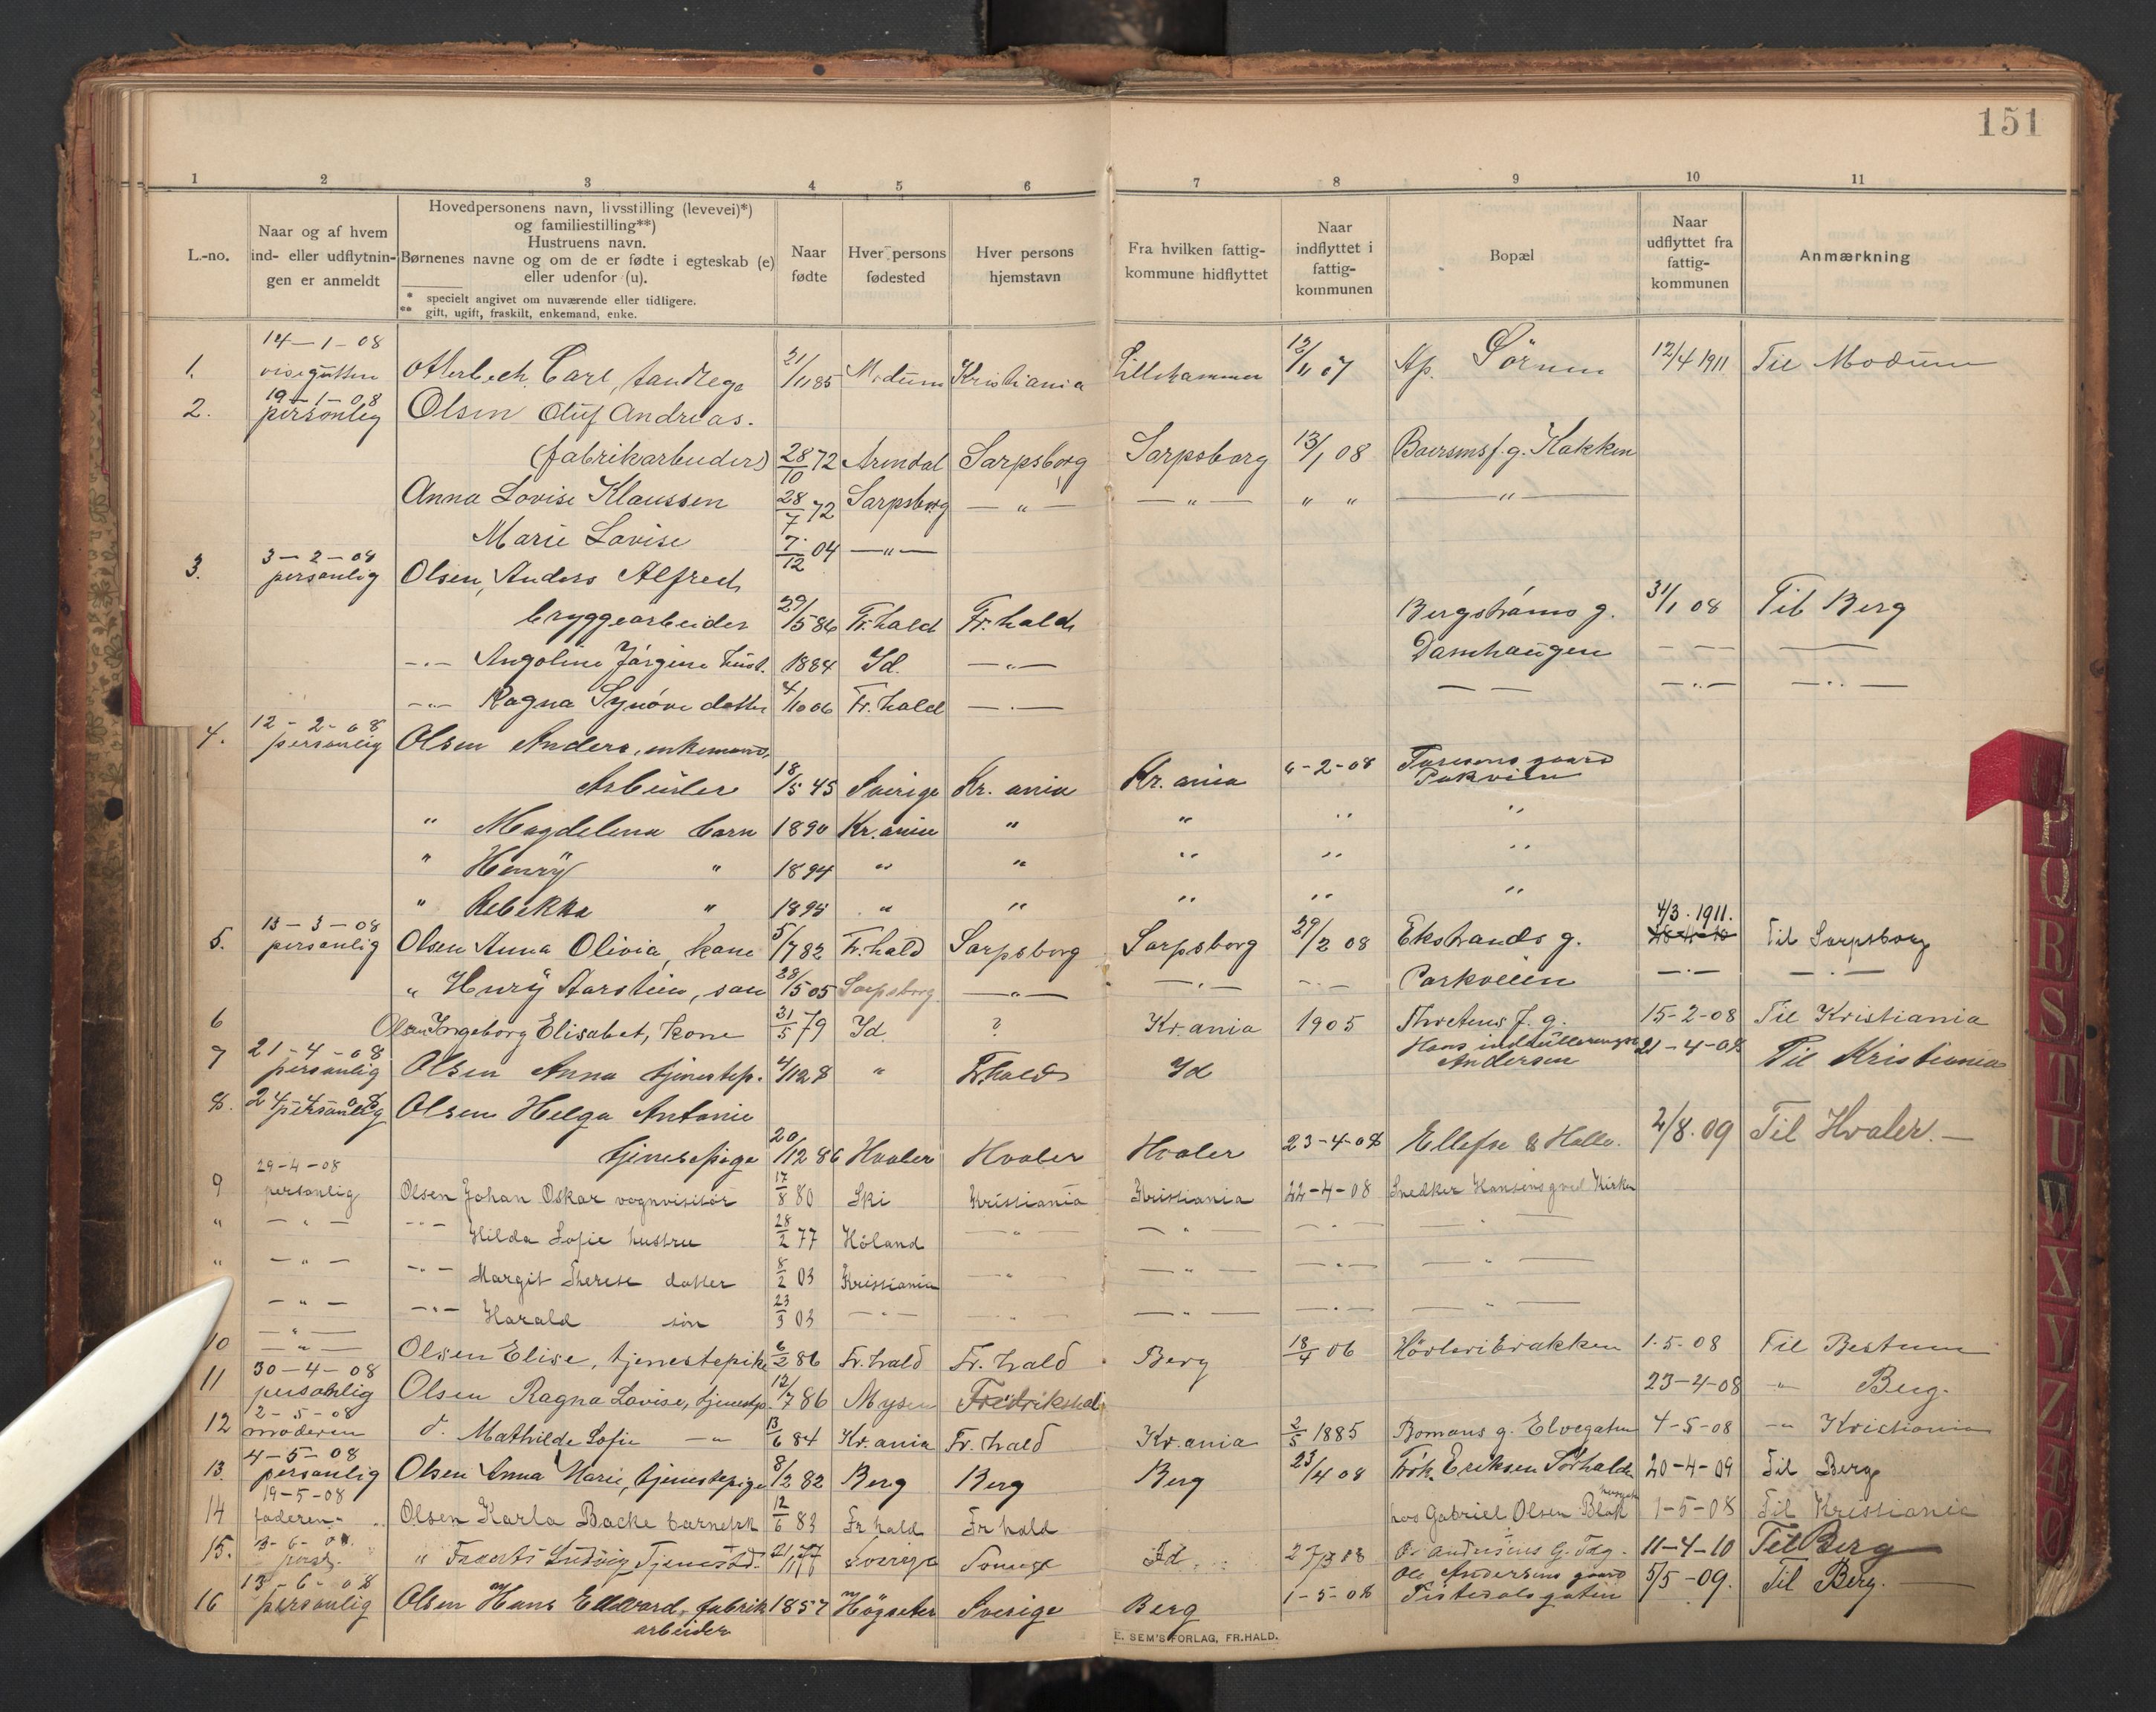 151
1 2 3 4 5 6 7 8 9 10 11
L.-no.
Naar og af hvem
ind- eller udflytnin-
gen er anmeldt
Hovedpersonens navn, livsstilling (levevei)*)
og familiestilling**)
Hustruens navn.
Børnenes navne og om de er fødte i egteskab (e)
eller udenfor (u).
* specielt angivet om nuværende eller tidligere.
** gift, ugift, fraskilt, enkemand, enke.
Naar
fødte
Hver persons
fødested
Hver persons
hjemstavn
Fra hvilken fattig-
kommune hidflyttet
Naar
indflyttet i
fattig-
kommunen
Bopæl
Naar
udflyttet fra
fattig-
kommunen
Anmærkning
14-1-08
1. visergutten Otterbech, Carl, tandlege 21/11 85 Modum Kristiania Lillehammer 12/11 07 Ap. Sörum 12/4 1911 Til Modum
19-1-08
2. personlig Olsen Oluf Andreas.
(fabrikarbeider) 28/10 72 Arendal Sarpsborg Sarpsborg 13/1 08 g. Kakken
Anna Lovise Klaussen 28/7 72 Sarpsborg —"— —"— " " —"—
Marie Lovise 7/12 04 —"—
3-2-08
3. personlig Olsen, Anders Alfred
bryggearbeider 29/5 86 Fr.hald Fr.hald Bergströms g. 31/1 08 Til Berg
—"— Angoline Jörgine hust. 1884 Id. —"— Damhaugen — — —
—"— Ragna Synöve datter 4/10 06 Fr.hald —"— — — —"— —"—
12-2-08
4. personlig Olsen Anders, enkemand,
Arbeider 18/5 45 Sverige Kr.ania Kr.ania 6-2-08 gaard
" Magdelena barn 1890 Kr.ania " " " "
" Henrÿ " 1894 " " " " "
" Rebekka " 1895 " " " " "
13-3-08 4/3. 1911.
5. personlig Olsen Anna Olivia, kone 5/7 82 Fr.hald Sarpsborg Sarpsborg 29/2 08 Ekstrands g. Til Sarpsborg
" Henrÿ Aarstein, søn 28/5 05 Sarpsborg —"— —"— —"— Parkveien —"— —"—
6 Olsen Ingeborg Elisabet, kone 31/5 79 Id. ? Kr.ania 1905 g. 15-2-08 Til Kristiania
21-4-08 Hans
7 personlig Olsen Anna tjenestep. " Fr.hald Id Andersen 21-4-08 Til Kristiania
24-4-08
8. personlig Olsen Helga Antonie
tjenestepige 20/12 86 Hvaler Hvaler Hvaler 23-4-08 Ellefse & Halle. 2/8.09 Til Hvaler.—
29-4-08
9 personlig Olsen Johan Oskar vognvisitör 17/8 80 Ski Kristiania Kristiania 22-4-08 Snedker Hansens g ved Kirken
" —"— —"— Hilda Sofie hustru 28/2 77 Höland —"— —"— —"— —"—
" —"— —"— Margit Therese datter 8/2 03 Kristiania —"— —"— —"— —"—
—"— —"— Harald sön 23/3 03 —"— —"— —"— —"— —"—
10 —"— Olsen Elise, tjenestepike 6/2 86 Fr.hald Fr.hald Berg 18/4 06 1-5-08 Til Bestum
30-4-08
11 personlig Olsen Ragna Lovise, tjenestep. 12/7 86 Mysen Fredrikshald 23-4-08 " Berg.
2-5-08
12 moderen d. Mathilde Sofie —"— 13/6 84 Kr.ania Fr.hald Kr.ania 2/5 1885 Bomans g. Elvegaten 4-5-08 —"— Kristiania
4-5-08
13. personlig Olsen Anna Marie, tjenestepige 8/12 82 Berg Berg Berg 23/4 08 Frök. Eriksen Sörhalden 20-4-09 Til Berg
19-5-08
14 faderen Olsen Karla Backe barnepk 12/6 83 Fr hald Fr hald hos Gabriel Olsen Blok 1-5-08 Til Kristiania
3-6-08
15. persl. " Ludvig Sverige Sverige Id 27/3 08 11-4-10 Til Berg
13-6-08 Ole Andersens gaard
16 personlig Olsen Hans Edevard, fabrik 1857 Högsäter Sverige Berg 1-5-08 Tistedalsgaten 5/5-09. Til Berg.—
arbeider
E. SEM'S FORLAG, FR.HALD.
P
Q
R
S
T
U
W
X
Y
Z
Æ
Ø